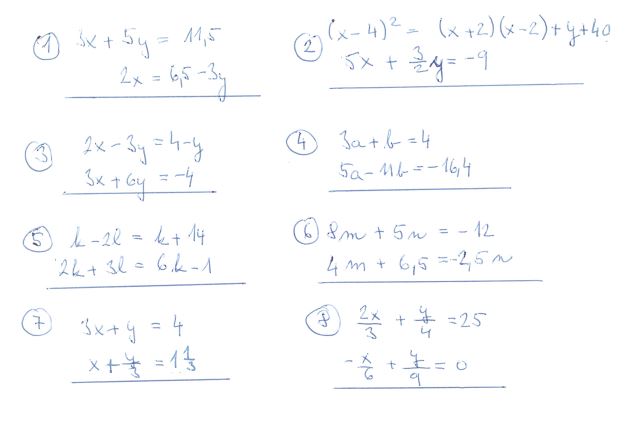 ① 3x + 5y = 11,5
2x = 6,5 - 3y
② (x-4)² = (x+2)(x-2)+y+40
5x + 3/2 y = -9
③ 2x - 3y = 4 - y
3x + 6y = -4
④ 3a + b = 4
5a - 11b = -16,4
⑤ k - 2l = k + 14
2k + 3l = 6k - 1
⑥ 8m + 5n = -12
4m + 6,5 = -2,5n
⑦ 3x + y = 4
x + y/3 = 1 1/3
⑧ 2x/3 + y/4 = 25
-x/6 + y/9 = 0